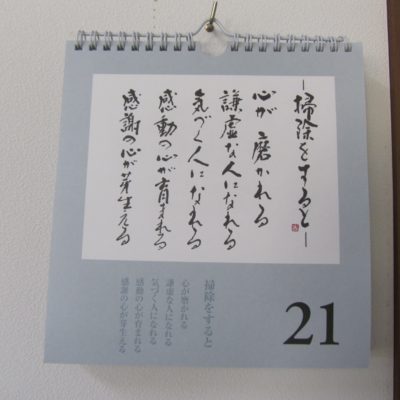 ―掃除をすると―
心が磨かれる
謙虚な人になれる
気づく人になれる
感動の心が育まれる
感謝の心が芽生える
掃除をすると
心が磨かれる
謙虚な人になれる
気づく人になれる
感動の心が育まれる
感謝の心が芽生える
21